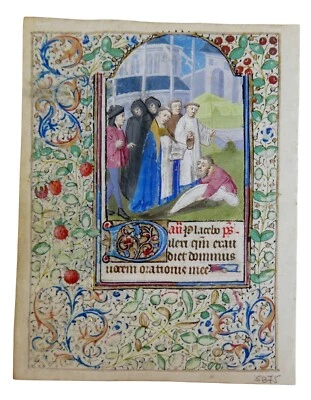 añ Placebo pš
Dilexi qm̄ exau
diet dominus
uocem orationis mee